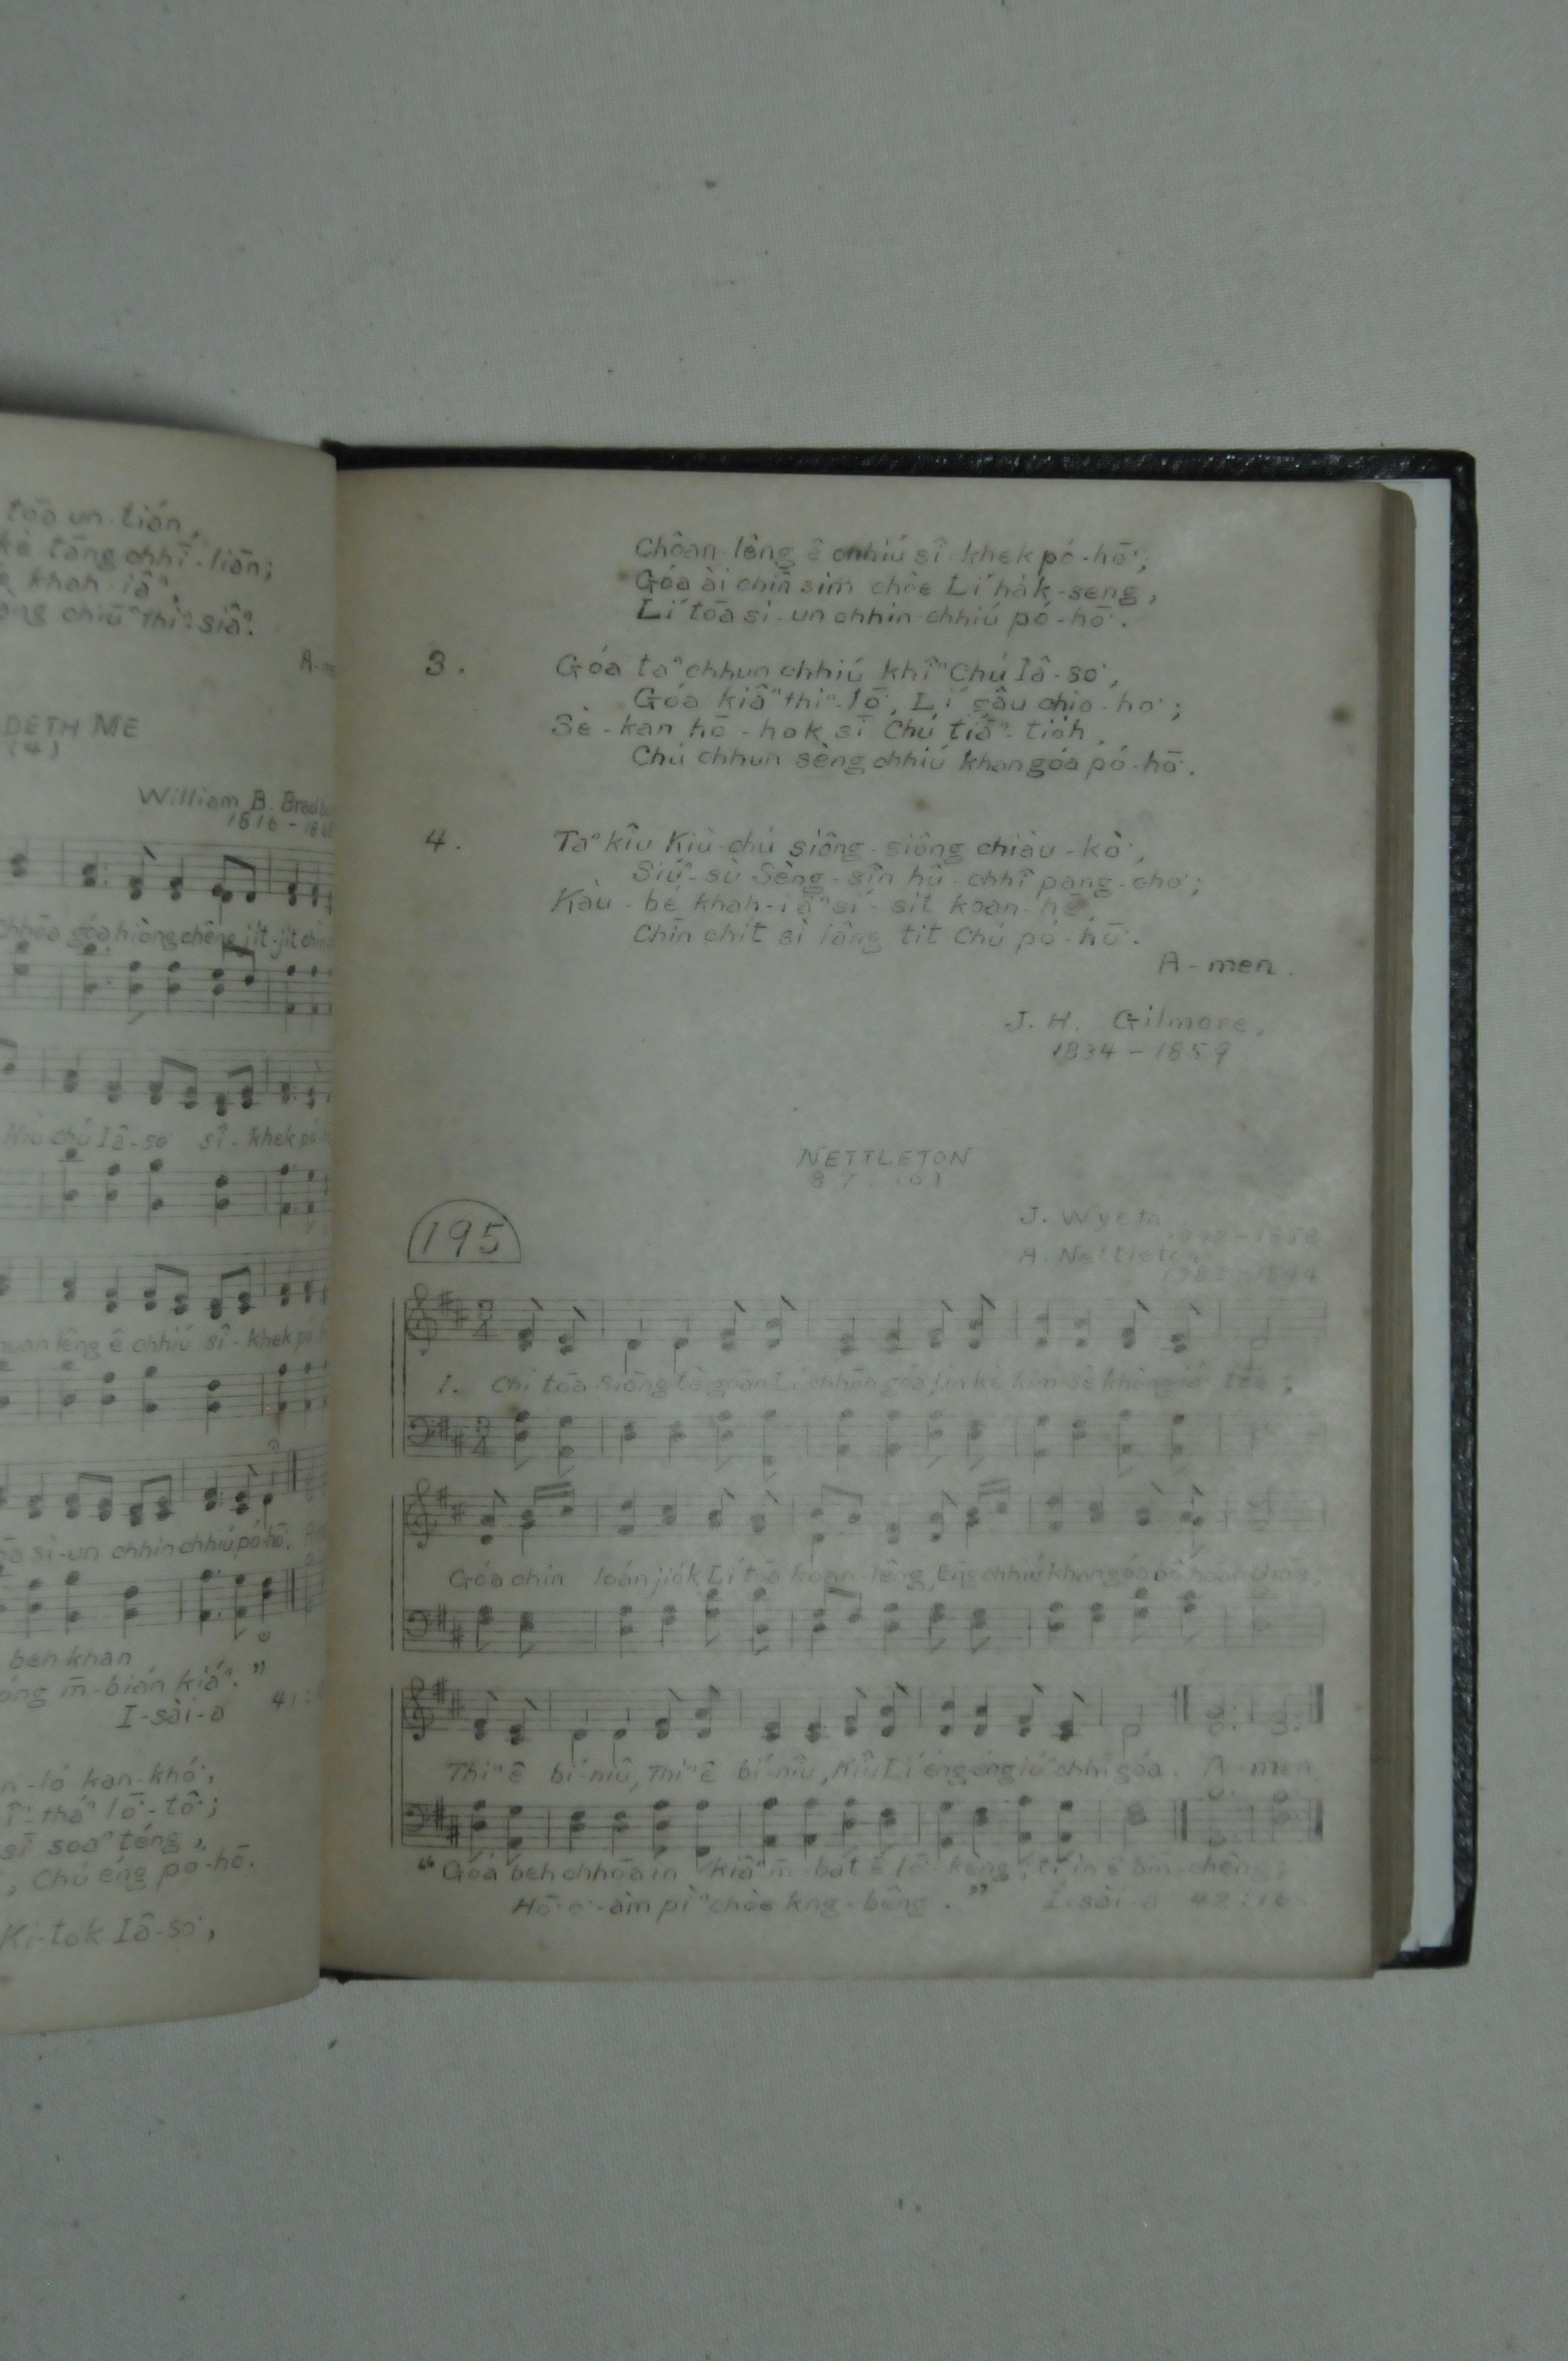 tōa un-lián,
kè tāng chhī-liān;
khah-iâⁿ,
chiūⁿ thiⁿ-siâⁿ.
A-me
DETH ME
William B. Brad
1816 - 18
chhōa góa hiòng chêng jit-jit chìn
Kiù-chú Iâ-so͘ sî-khek pó-
lêng ê chhiú sî-khek pó-
si-un chhin chhiú pó-hō͘.
beh khan
m̄-bián kiaⁿ."
I-sài-a 41:
-lō͘ kan-khó͘,
lō͘-tô͘;
sī soaⁿ téng,
, Chú éng pó-hō͘.
Ki-tok Iâ-so͘,
Choân-lêng ê chhiú sî-khek pó-hō͘;
Góa ài chīn sim chòe Lí hák-seng,
Lí tōa si-un chhin chhiú pó-hō͘.
3. Góa taⁿ chhun chhiú khîⁿ Chú Iâ-so͘,
Góa kiâⁿ thiⁿ-lō͘, Lí gâu chio-ho͘;
Sè-kan hō-hok sī Chú tiāⁿ-tio̍h,
Chú chhun sèng chhiú khan góa pó-hō͘.
4. Taⁿ kîu Kiù-chú siông-siông chiàu-kò͘,
Siúⁿ-sù Sèng-sîn hû-chhî pang-chō͘;
Kàu-bé khah-iâⁿ sí-sit koan-hē
Chīn chit sì lâng tit Chú pó-hō͘.
A-men.
J. H. Gilmore,
1834 - 1859
NETTLETON
8 7
195
J. Wyeth
1858
A. Nettleton
1844
1. Chì tōa Siōng-tè goān Lí chhōa góa, Jîn kè kim-sè khòng-iá tōe;
Góa chin loán-jio̍k Lí tōa koân-lêng, Ēng chhiú khan góa
Thiⁿ ê bí-niû, Thiⁿ ê bí-niû, Kîu Lí éng-éng iúⁿ-chhī góa. A-men
"Góa beh chhōa in kiâⁿ m̄-bat ê lō͘-kèng; tī in ê bīn-chêng;
Hō͘ o͘-àm pìⁿ-chòe kng-bêng." I-sài-a 42:16.